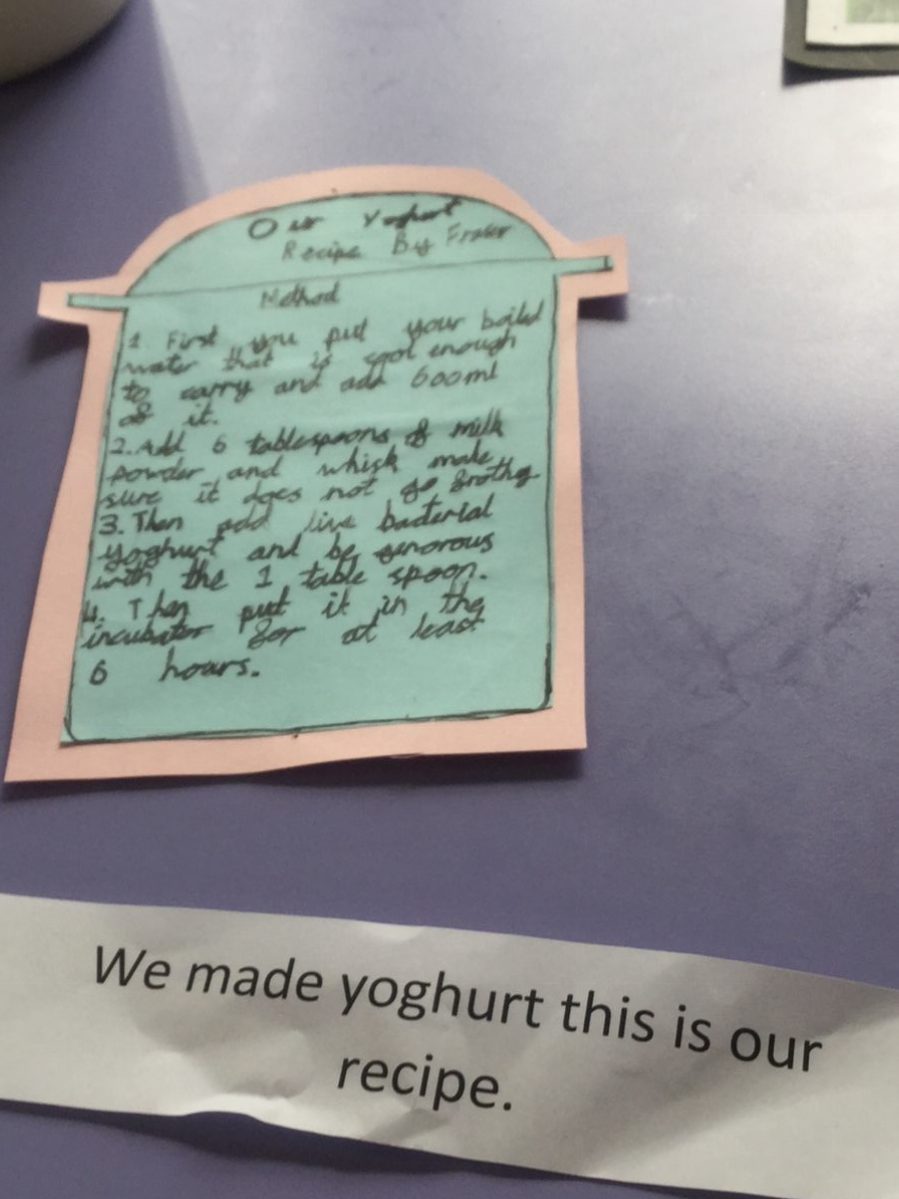 Our Yoghurt
Recipe By Fraser
Method
1 First you put your boiled
water that is cool enough
to carry and add 600ml
of it.
2. Add 6 tablespoons of milk
powder and whisk make
sure it does not go frothy
3. Then add live bacterial
yoghurt and be generous
with the 1 table spoon.
4. Then put it in the
incubator for at least
6 hours.
We made yoghurt this is our
recipe.